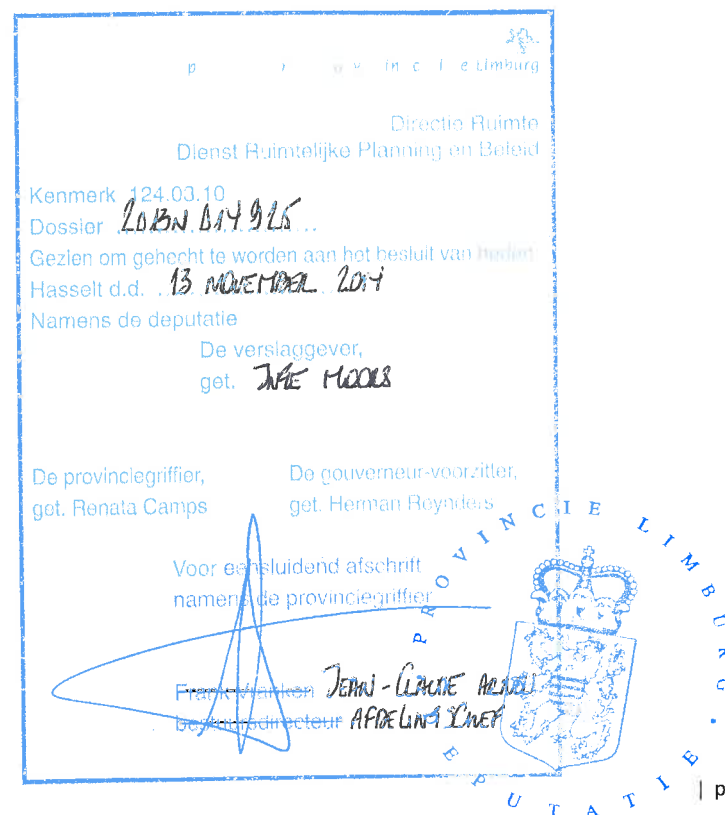 provincie Limburg
Directie Ruimte
Dienst Ruimtelijke Planning en Beleid
Kenmerk 124.03.10
Dossier 2013N014925
Gezien om gehecht te worden aan het besluit van heden
Hasselt d.d. 13 NOVEMBER 2014
Namens de deputatie
De verslaggever,
get. INGE MOORS
De provinciegriffier, De gouverneur-voorzitter,
get. Renata Camps get. Herman Reynders
Voor eensluidend afschrift
namens de provinciegriffier
Frank Vranken JEAN-CLAUDE
bestuursdirecteur AFDELINGSCHEF
PROVINCIE LIMBURG • DEPUTATIE •
| p